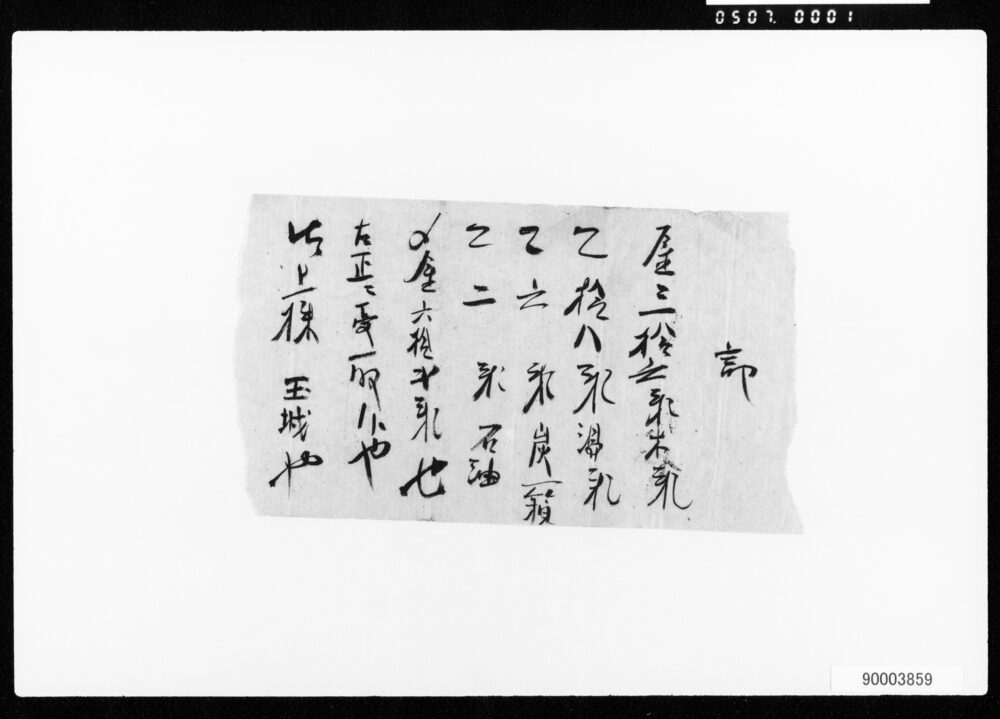 0507.0001
記
金三拾六銭木銭
〃拾八銭湯銭
〃六銭炭一
〃二銭石油
〆金六拾弐銭也
右正ニ受取候也
池上様 玉城や
90003859